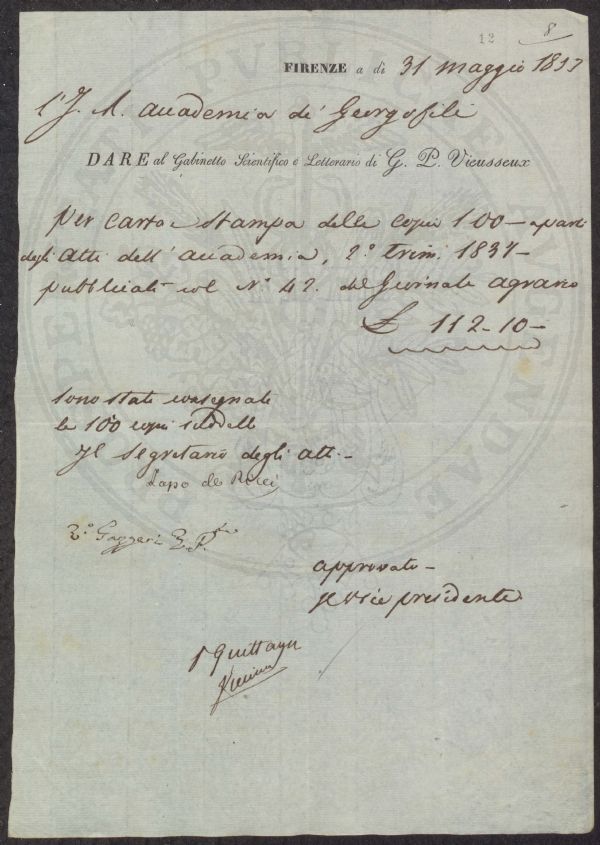 12 8
FIRENZE a di 31 maggio 1837
l'I. R. Accademia de' Georgofili
DARE al Gabinetto Scientifico e Letterario di G. P. Vieusseux
per carta e stampa delle copie 100 - a parte
degli Atti dell'accademia, 2º trim. 1837 -
pubblicati col Nº 42. del Giornale agrario
£ 112-10-
sono state consegnate
le 100 copie suddette
Il segretario degli atti -
Lapo de Ricci
Vº Gazzeri
approvato -
Il Vice presidente